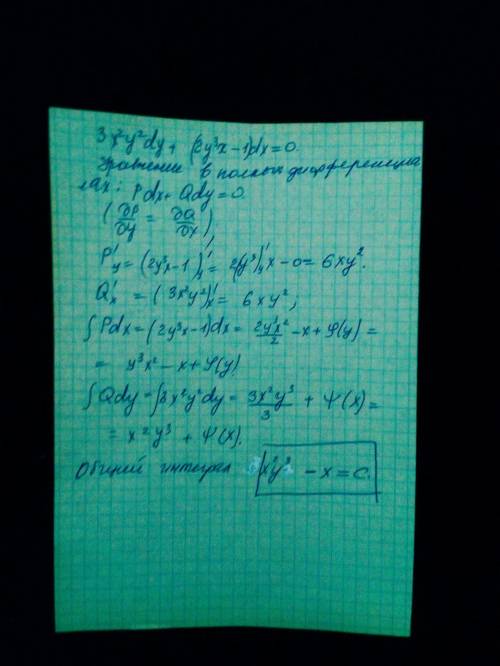 3x²y²dy + (2y³x-1)dx=0.
Уравнение в полных дифференциа
лах: Pdx+Qdy=0.
(∂P/∂y = ∂Q/∂x),
P'y = (2y³x-1)'y = 2(y³)'y x-0 = 6xy².
Q'x = (3x²y²)'x = 6xy²;
∫Pdx = (2y³x-1)dx = 2y³x²/2 - x + φ(y) =
= y³x² - x + φ(y)
∫Qdy = ∫3x²y²dy = 3x²y³/3 + Ψ(x) =
= x²y³ + Ψ(x).
Общий интеграл x²y³ - x = C.